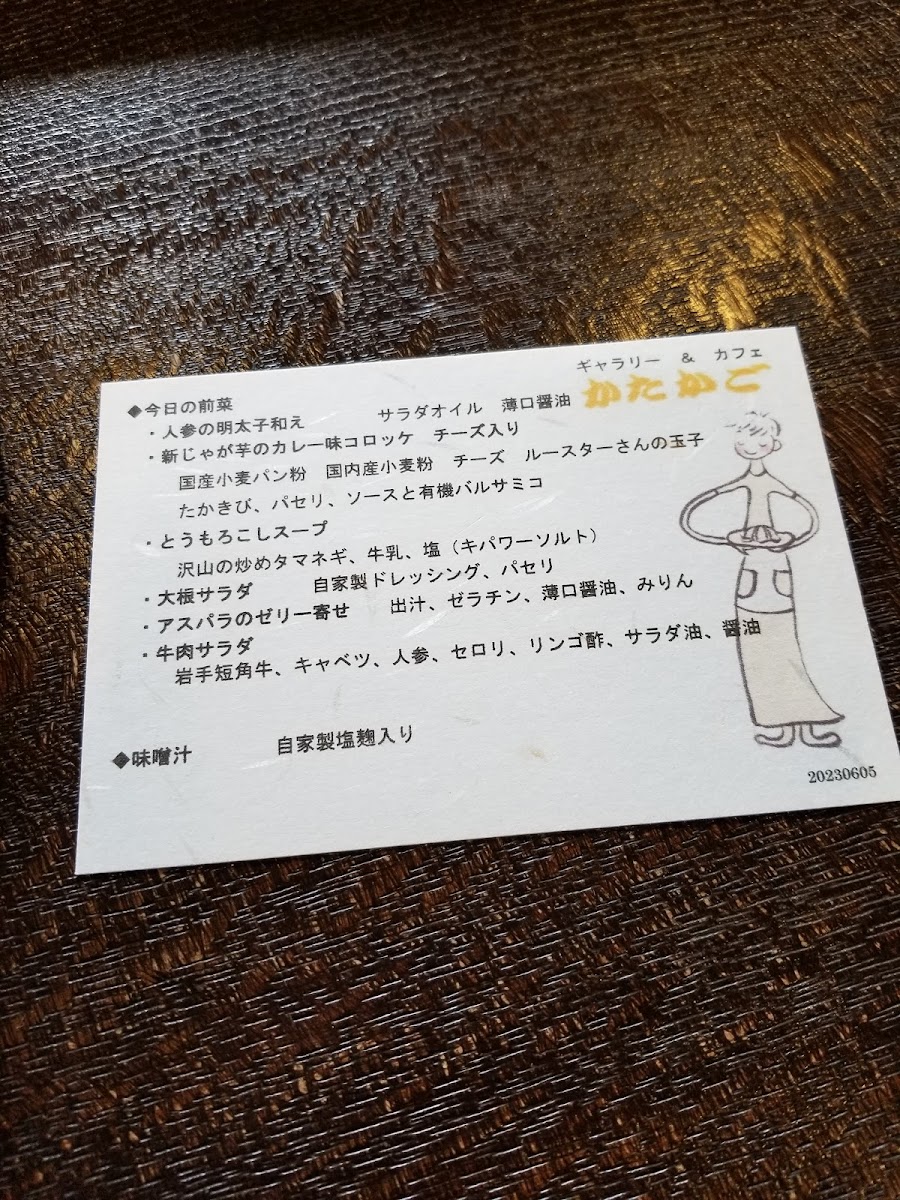 ギャラリー & カフェ
かたかご
◆今日の前菜
・人参の明太子和え サラダオイル 薄口醤油
・新じゃが芋のカレー味コロッケ チーズ入り
国産小麦パン粉 国内産小麦粉 チーズ ルースターさんの玉子
たかきび、パセリ、ソースと有機バルサミコ
・とうもろこしスープ
沢山の炒めタマネギ、牛乳、塩（キパワーソルト）
・大根サラダ 自家製ドレッシング、パセリ
・アスパラのゼリー寄せ 出汁、ゼラチン、薄口醤油、みりん
・牛肉サラダ
岩手短角牛、キャベツ、人参、セロリ、リンゴ酢、サラダ油、醤油
◆味噌汁 自家製塩麹入り
20230605